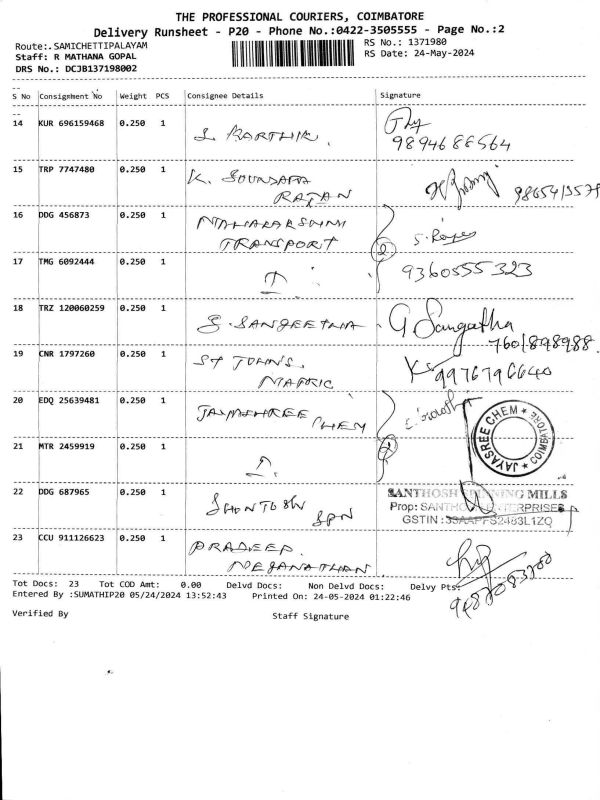 THE PROFESSIONAL COURIERS, COIMBATORE
Delivery Runsheet - P20 - Phone No.:0422-3505555 - Page No.:2
Route:.SAMICHETTIPALAYAM
RS No.: 1371980
Staff: R MATHANA GOPAL
RS Date: 24-May-2024
DRS No.: DCJB137198002
S No Consignment No Weight PCS Consignee Details Signature
14 KUR 696159468 0.250 1 S. KARTHIK.
9894686564
15 TRP 7747480 0.250 1 K. SOUNDARA
RAJAN
16 DDG 456873 0.250 1 MAHADARSHINI
TRANSPORT
2
17 TMG 6092444 0.250 1
9360555323
18 TRZ 120060259 0.250 1 S. SANGEETHA
G Sangatha
7601898988
19 CNR 1797260 0.250 1 ST JOHNS.
MATRIC
9976796640
20 EDQ 25639481 0.250 1 JAYASHREE CHEM
JAYASREE CHEM ★ COIMBATORE ★
21 MTR 2459919 0.250 1
22 DDG 687965 0.250 1 SANTOSH SPN
SANTHOSH SPINNING MILLS
Prop: SANTHOSH ENTERPRISES
23 CCU 911126623 0.250 1 PRADEEP.
MEGANATHAN.
Tot Docs: 23 Tot COD Amt: 0.00 Delvd Docs: Non Delvd Docs: Delvy Pts:
Entered By :SUMATHIP20 05/24/2024 13:52:43 Printed On: 24-05-2024 01:22:46
Verified By
Staff Signature